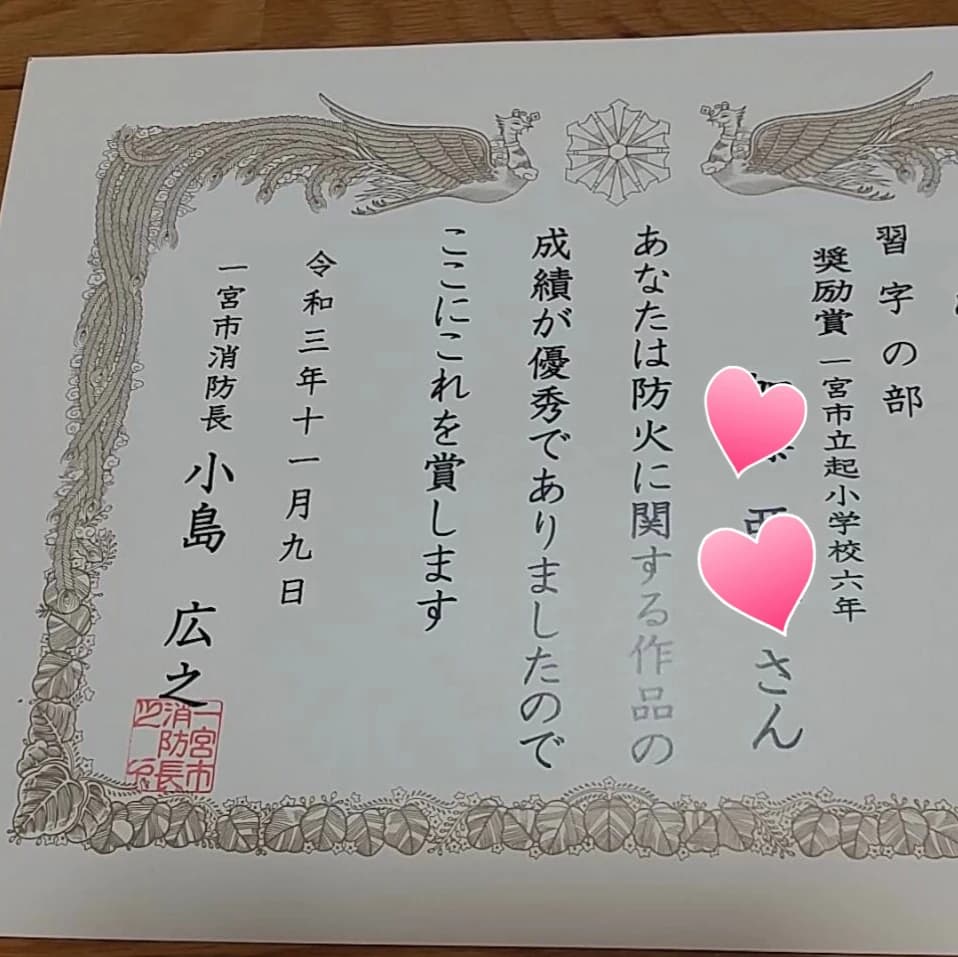 習字の部
奨励賞 一宮市立起小学校六年
さん
あなたは防火に関する作品の
成績が優秀でありましたので
ここにこれを賞します
令和三年十一月九日
一宮市消防長 小島 広之
一宮市
消防長
之印